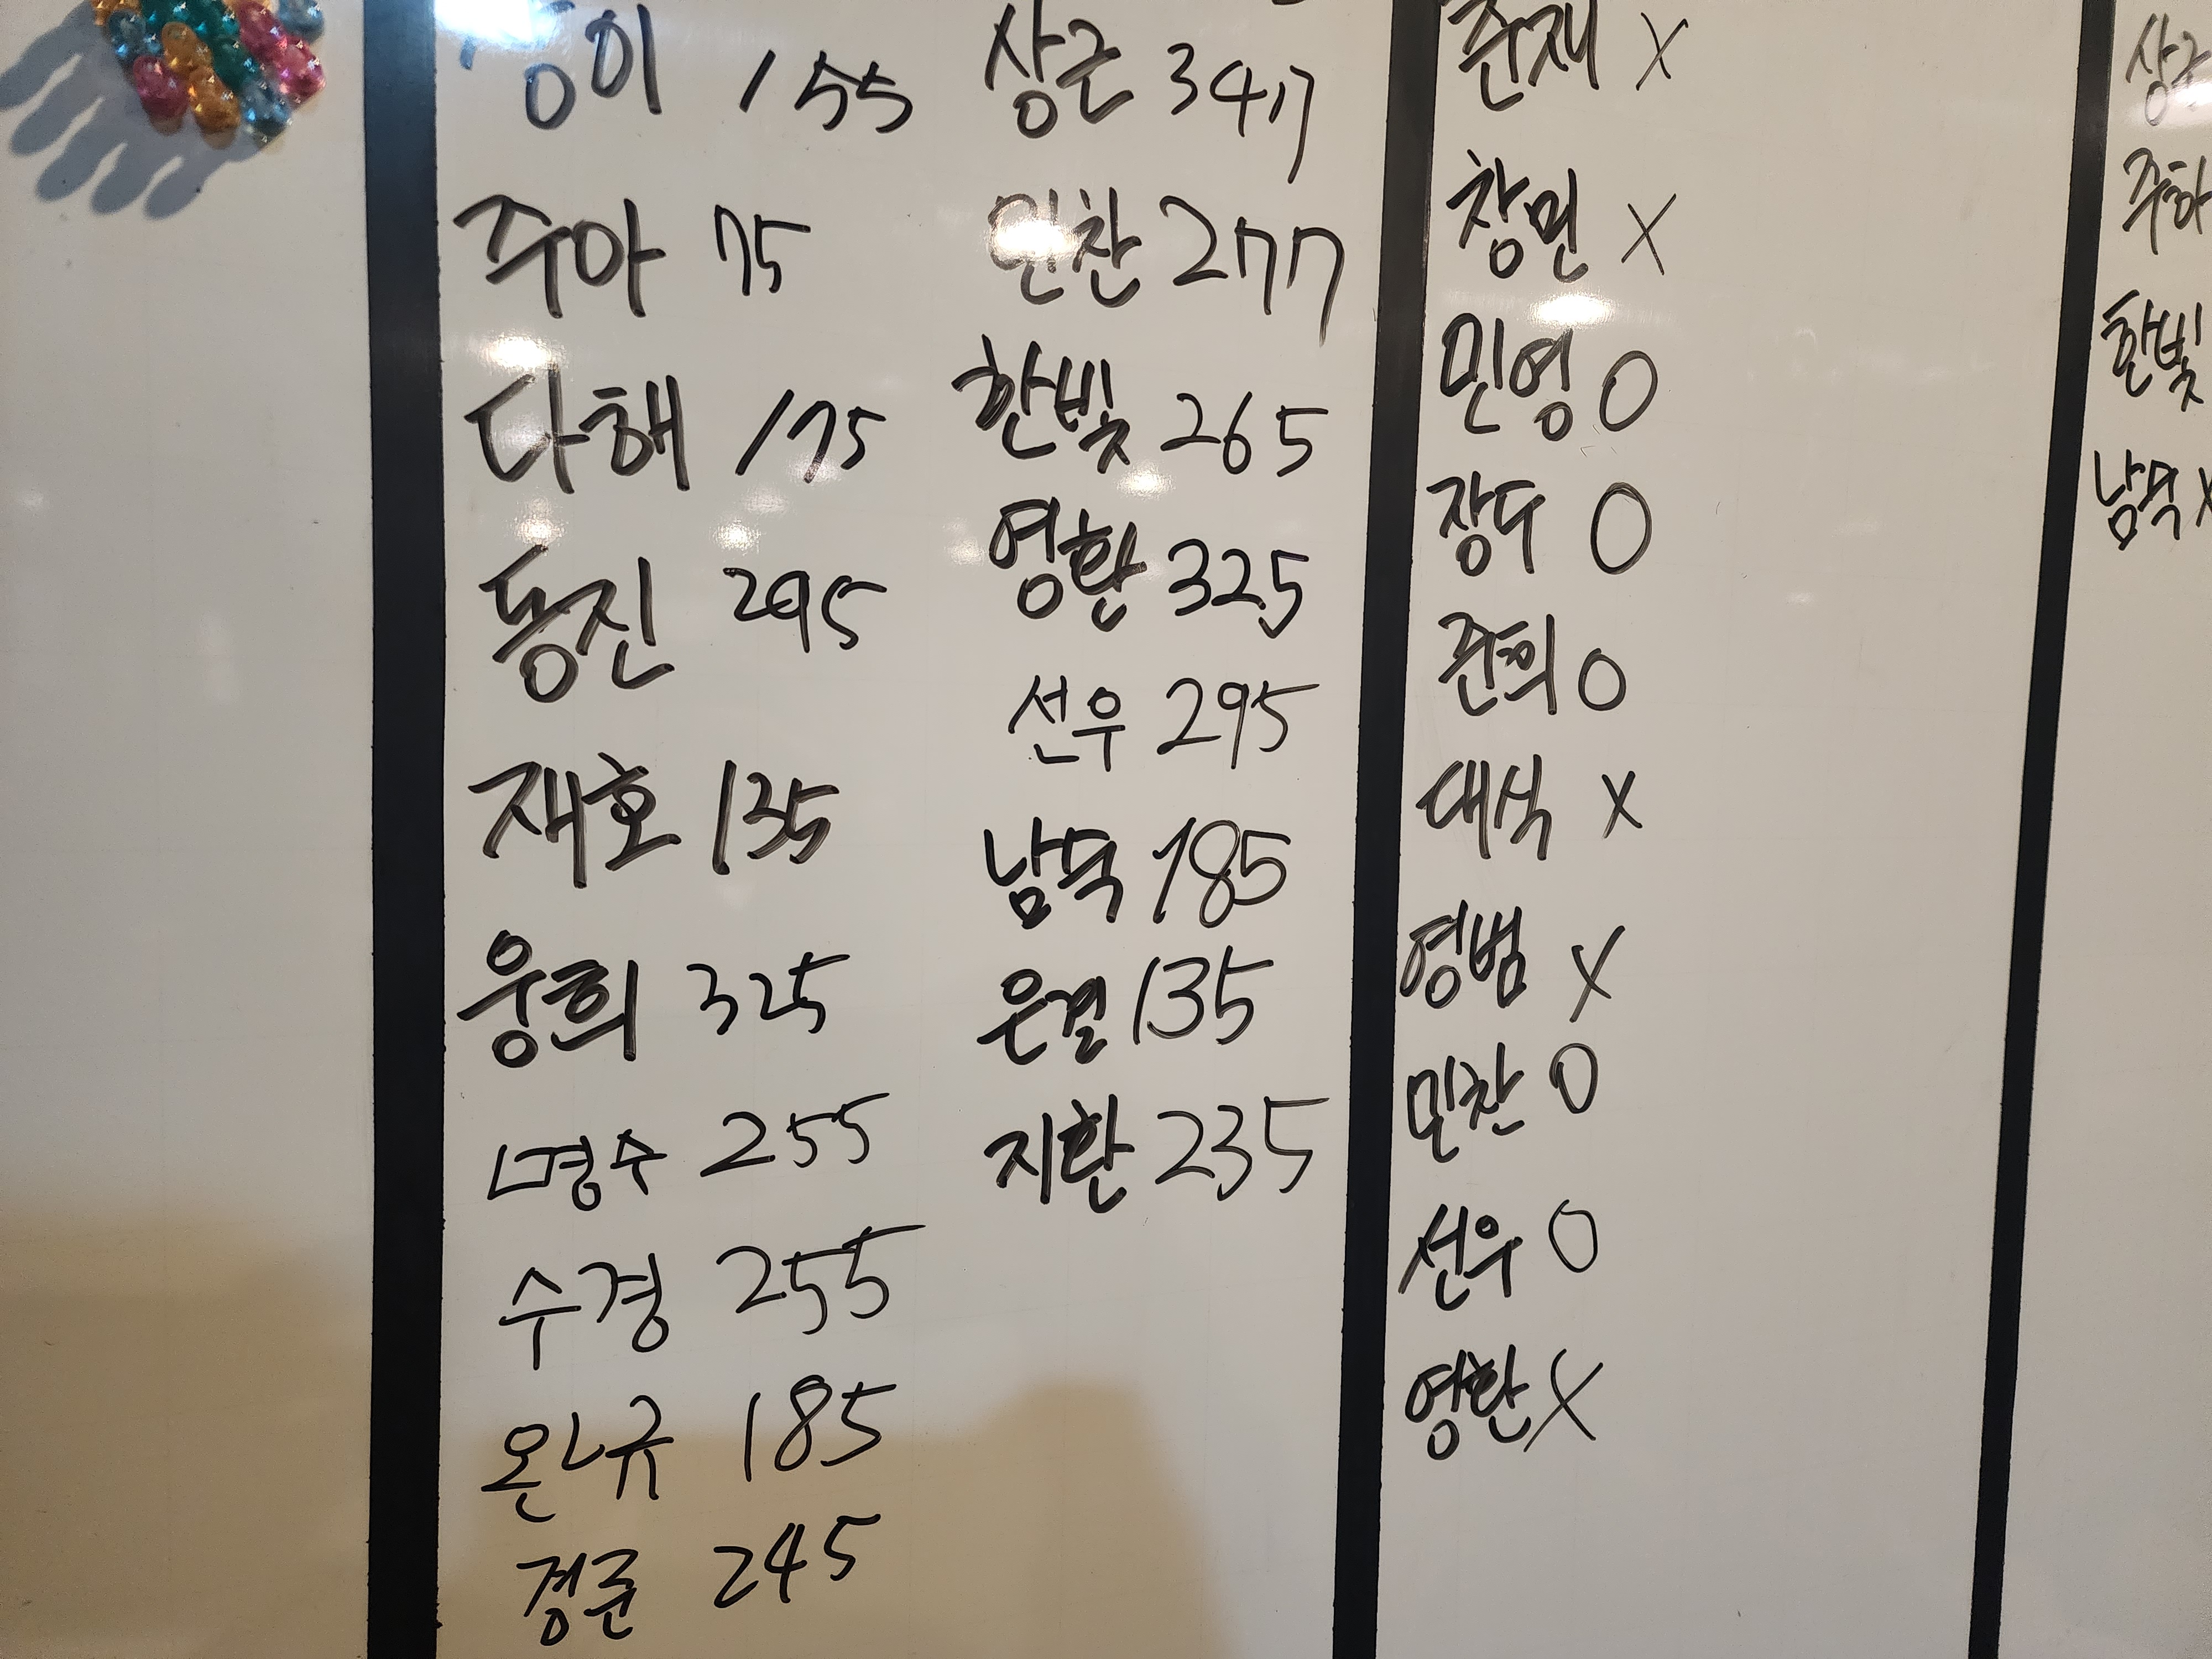 155
주아 75
다해 175
동진 295
재호 135
웅희 325
명수 255
수경 255
온유 185
경준 245
상근 347
민찬 277
한빛 265
영환 325
선우 295
남두 185
은결 135
지환 235
준재 X
창면 X
민영 O
장두 O
준희 O
대식 X
영범 X
민찬 O
선우 O
영환 X
상근
주하
한빛
남두 X